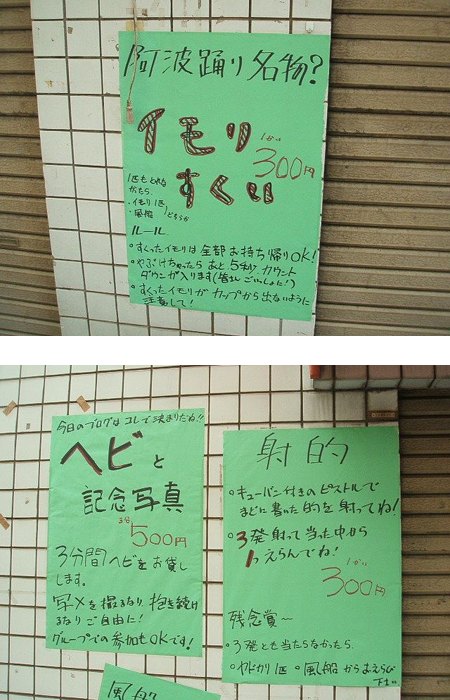 阿波踊り名物?
イモリ
すくい
1かい
300円
1匹もとれな
かたら
・イモリ1匹
・風船
どちらか
ルール
○すくったイモリは全部お持ち帰りOK!
○やぶけちゃったらあと5秒カウント
ダウンが入ります(皆さんごいっしょに!)
○すくったイモリがカップから出ないように
注意して!
今日のブログはコレで決まりだね!!
ヘビと
記念写真
3分
500円
3分間ヘビをお貸し
します。
写メを撮るなり、抱き続け
るなりご自由に!
グループでの参加もOKです!
射的
○キューバン付きのピストルで
まどに書った的を射ってね!
○3発射って当った中から
1つえらんでね!
1かい
300円
残念賞〜
○3発とも当たらなかったら
○ヤドカリ1匹 ○風船からえらび
下さい
風船